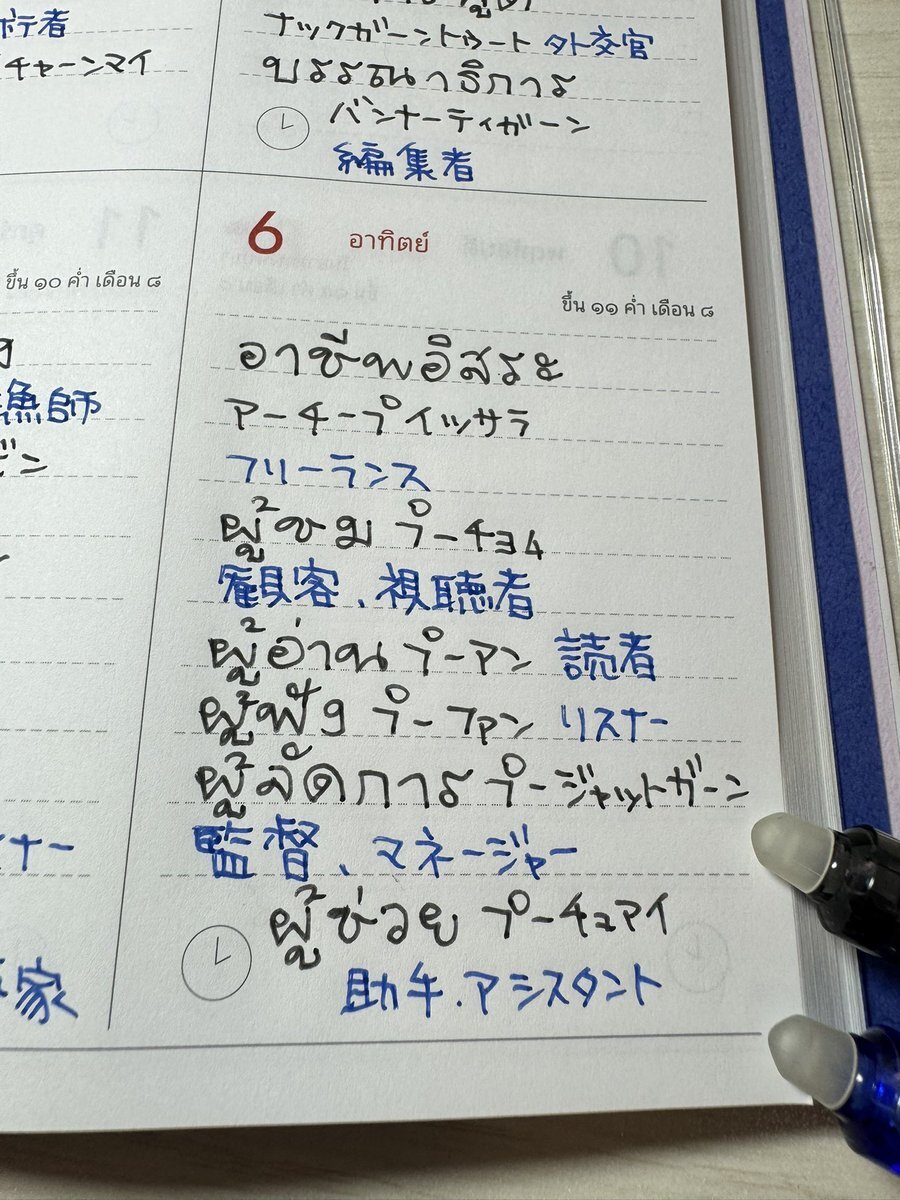 チャーンマイ
ナックガーントゥート 外交官
บรรณาธิการ
バンナーティガーン
編集者
ขึ้น ๑๐ ค่ำ เดือน ๘
漁師
ビン
ナー
家
6 อาทิตย์
ขึ้น ๑๑ ค่ำ เดือน ๘
อาชีพอิสระ
アーチープイッサラ
フリーランス
ผู้ชม プーチョム
顧客、視聴者
ผู้อ่าน プーアン 読者
ผู้ฟัง プーファン リスナー
ผู้จัดการ プージャットガーン
監督、マネージャー
ผู้ช่วย プーチュアイ
助手.アシスタント